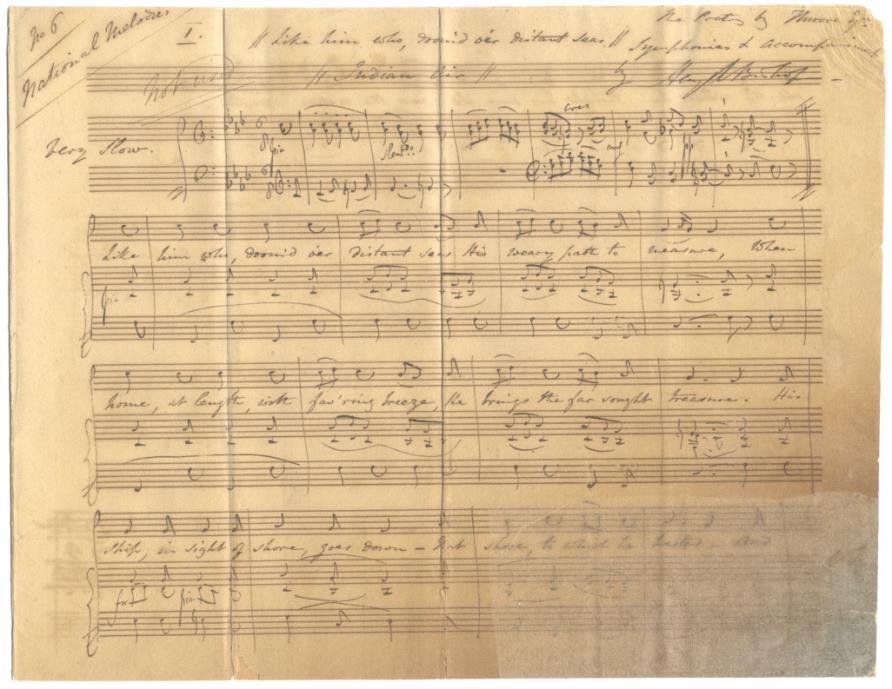 No 6
National Melodies
The Poetry by T Moore Esqr
I.
// Like him who, doom'd o'er distant seas //
Symphonies & Accompaniments
Not used
// Indian Air //
by Henry R Bishop
cres
Very Slow.
Like him who, doom'd o'er distant seas His weary path to measure, When
home, at length, with fav'ring breeze, He brings the far sought treasure. His
Ship, in sight of shore, goes down – That shore, to which he hasted – And